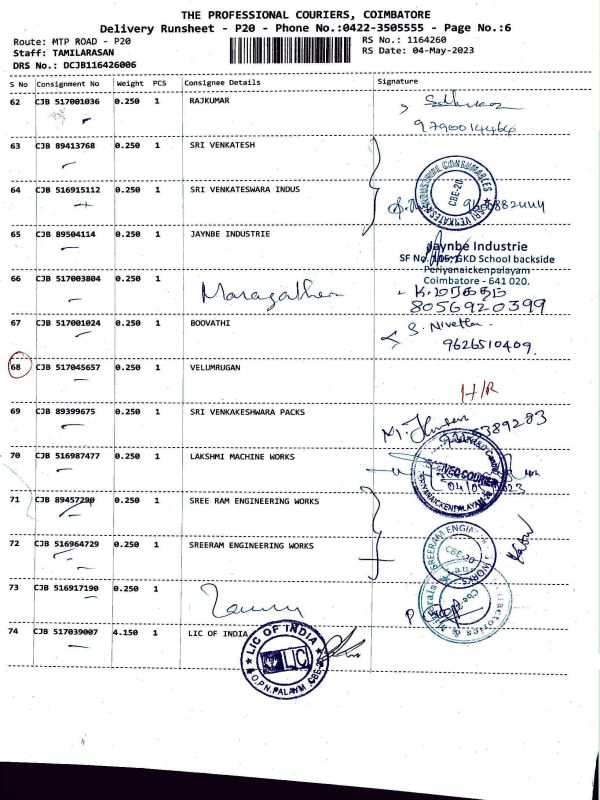 THE PROFESSIONAL COURIERS, COIMBATORE
Delivery Runsheet - P20 - Phone No.:0422-3505555 - Page No.:6
Route: MTP ROAD - P20 RS No.: 1164260
Staff: TAMILARASAN RS Date: 04-May-2023
DRS No.: DCJB116426006
S No Consignment No Weight PCS Consignee Details Signature
62 CJB 517001036 0.250 1 RAJKUMAR
9790014466
63 CJB 89413768 0.250 1 SRI VENKATESH
64 CJB 516915112 0.250 1 SRI VENKATESWARA INDUS
SRI VENKATESA INDUSTRIAL CONSUMABLES
CBE-20
65 CJB 89504114 0.250 1 JAYNBE INDUSTRIE
Jaynbe Industrie
SF No. 105, GKD School backside
Periyanaickenpalayam
Coimbatore - 641 020.
66 CJB 517003804 0.250 1
Maragatham
K. மரகதம்
8056920399
67 CJB 517001024 0.250 1 BOOVATHI
S. Nivetha
9626510409.
68 CJB 517045657 0.250 1 VELUMRUGAN
H/R
69 CJB 89399675 0.250 1 SRI VENKAKESHWARA PACKS
70 CJB 516987477 0.250 1 LAKSHMI MACHINE WORKS
71 CJB 89457290 0.250 1 SREE RAM ENGINEERING WORKS
72 CJB 516964729 0.250 1 SREERAM ENGINEERING WORKS
CBE-20
73 CJB 516917190 0.250 1
74 CJB 517039007 4.150 1 LIC OF INDIA
LIC OF INDIA
LIC